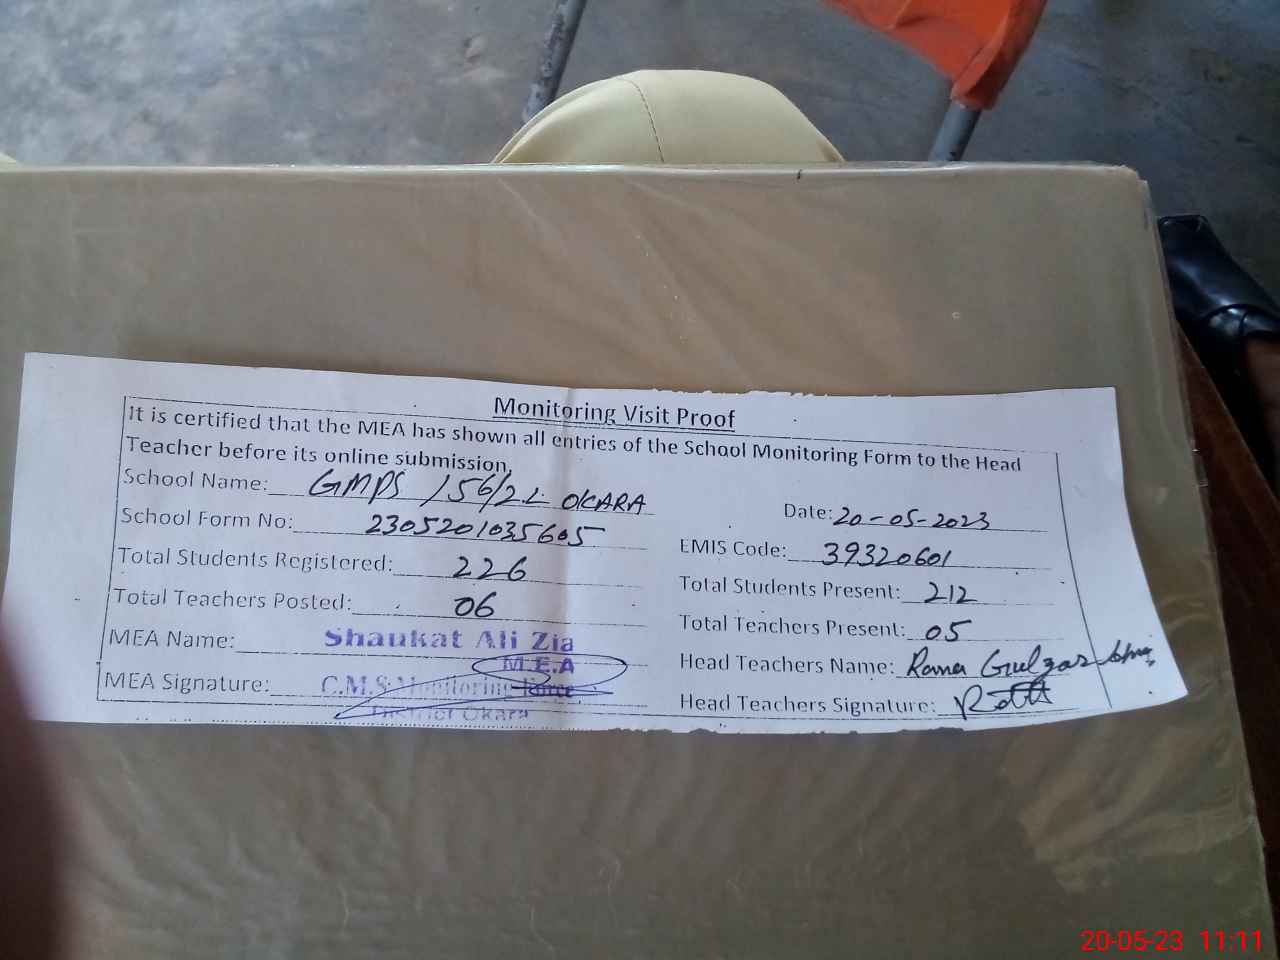 Monitoring Visit Proof
It is certified that the MEA has shown all entries of the School Monitoring Form to the Head
Teacher before its online submission.
School Name: GMPS 156/2L OKARA
Date: 20-05-2023
School Form No: 2305201035605
EMIS Code: 39320601
Total Students Registered: 226
Total Students Present: 212
Total Teachers Posted: 06
Total Teachers Present: 05
MEA Name: Shaukat Ali Zia
Head Teachers Name: Rana Gulzar
M.E.A
MEA Signature: C.M.S Monitoring
Head Teachers Signature:
District Okara
20-05-23 11:11